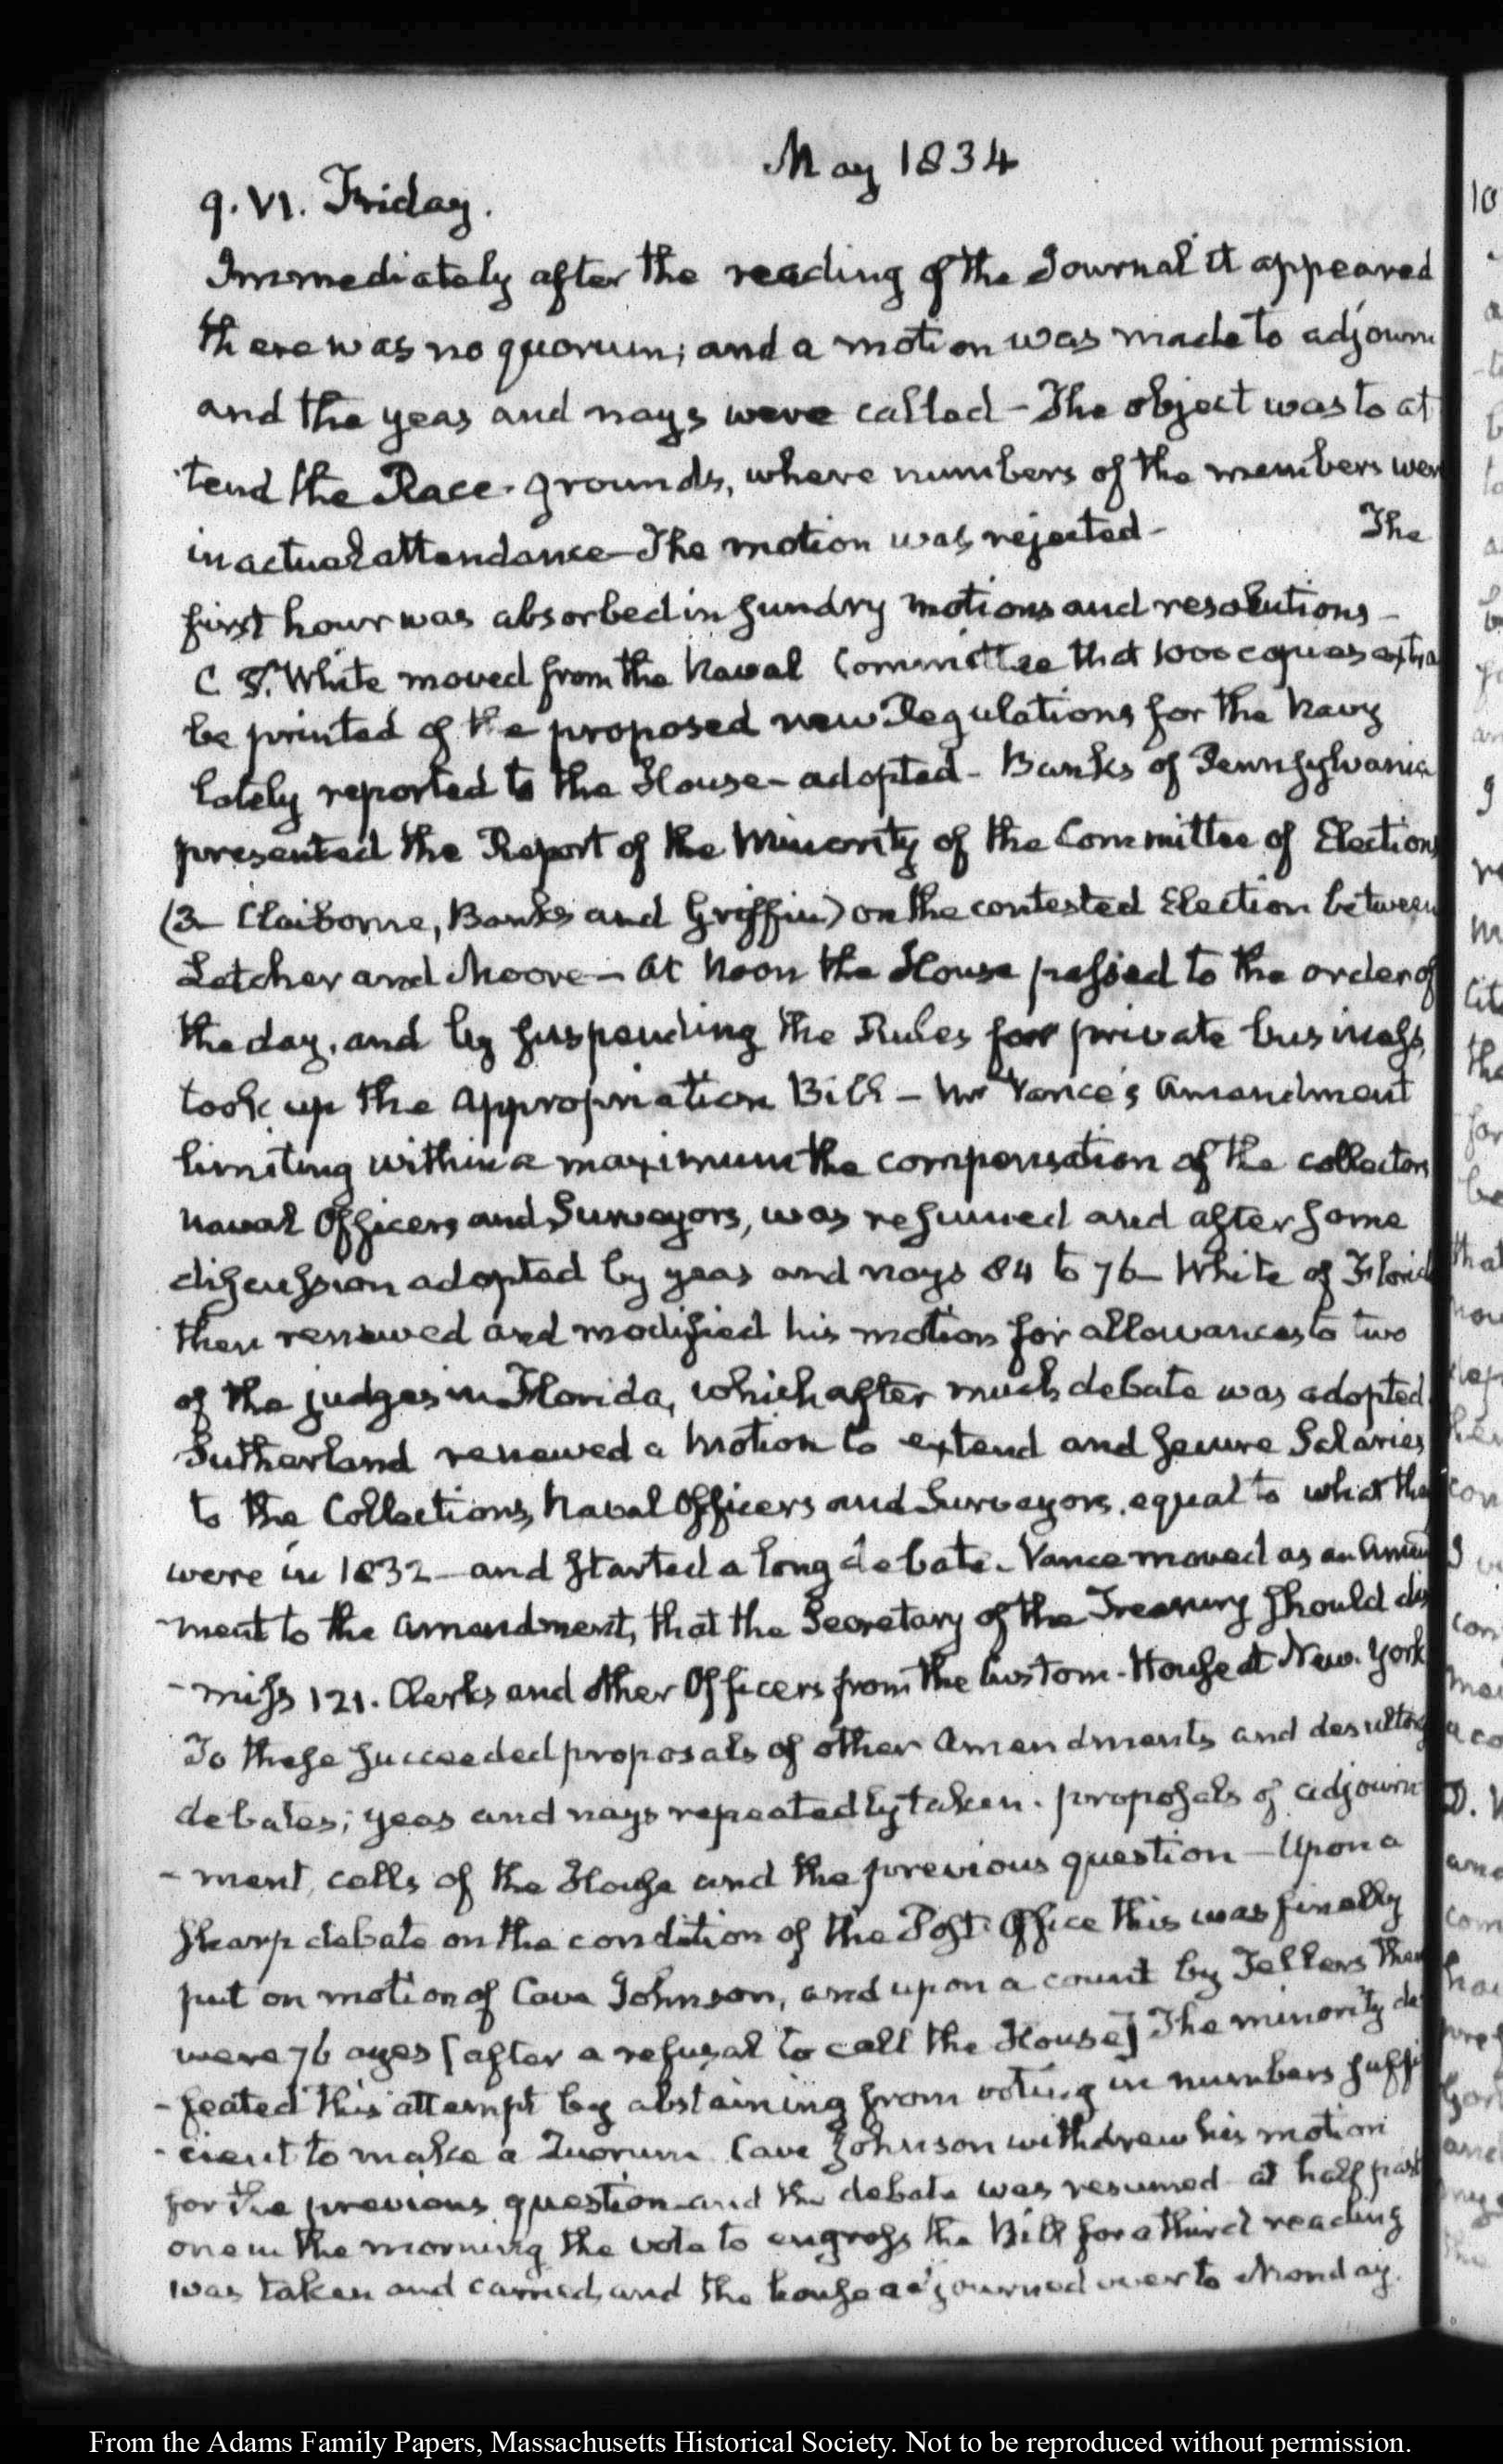 May 1834
9. VI. Friday.
Immediately after the reading of the Journal it appeared
there was no quorum; and a motion was made to adjourn
and the yeas and nays were called - The object was to at
tend the Race-grounds, where numbers of the members wer
in actual attendance - The motion was rejected - The
first hour was absorbed in sundry motions and resolutions -
C. White moved from the Naval Committee that 1000 copies extra
be printed of the proposed new Regulations for the Navy
lately reported to the House - adopted - Banks of Pennsylvania
presented the Report of the Minority of the Committee of Elections
(3 Claiborne, Banks and Griffin) on the contested Election between
Letcher and Moore - At Noon the House passed to the order of
the day, and by suspending the Rules for private business,
took up the Appropriation Bill - Mr Vance's Amendment
limiting within a maximum the compensation of the collectors
Naval Officers and Surveyors, was resumed and after some
discussion adopted by yeas and nays 84 to 76 - White of Florid
then renewed and modified his motion for allowances to two
of the judges in Florida, which after much debate was adopted
Sutherland renewed a motion to extend and secure Salaries
to the Collections, Naval Officers and Surveyors, equal to what they
were in 1832 - and started a long debate - Vance moved as an Amen
-ment to the amendment, that the Secretary of the Treasury should dis
-miss 121. Clerks and other Officers from the Custom-House at New-York
To these succeeded proposals of other Amendments and desultory
debates; yeas and nays repeatedly taken. proposals of adjourn
-ment, calls of the House and the previous question - Upon a
sharp debate on the condition of the Post-Office this was finally
put on motion of Cave Johnson, and upon a count by Tellers there
were 76 ayes [after a refusal to call the House] The minority de
-feated this attempt by abstaining from voting in numbers suffi
-cient to make a Quorum Cave Johnson withdrew his motion
for the previous question and the debate was resumed - at half past
one in the morning the vote to engross the Bill for a third reading
was taken and carried, and the house adjourned over to Monday.
From the Adams Family Papers, Massachusetts Historical Society. Not to be reproduced without permission.